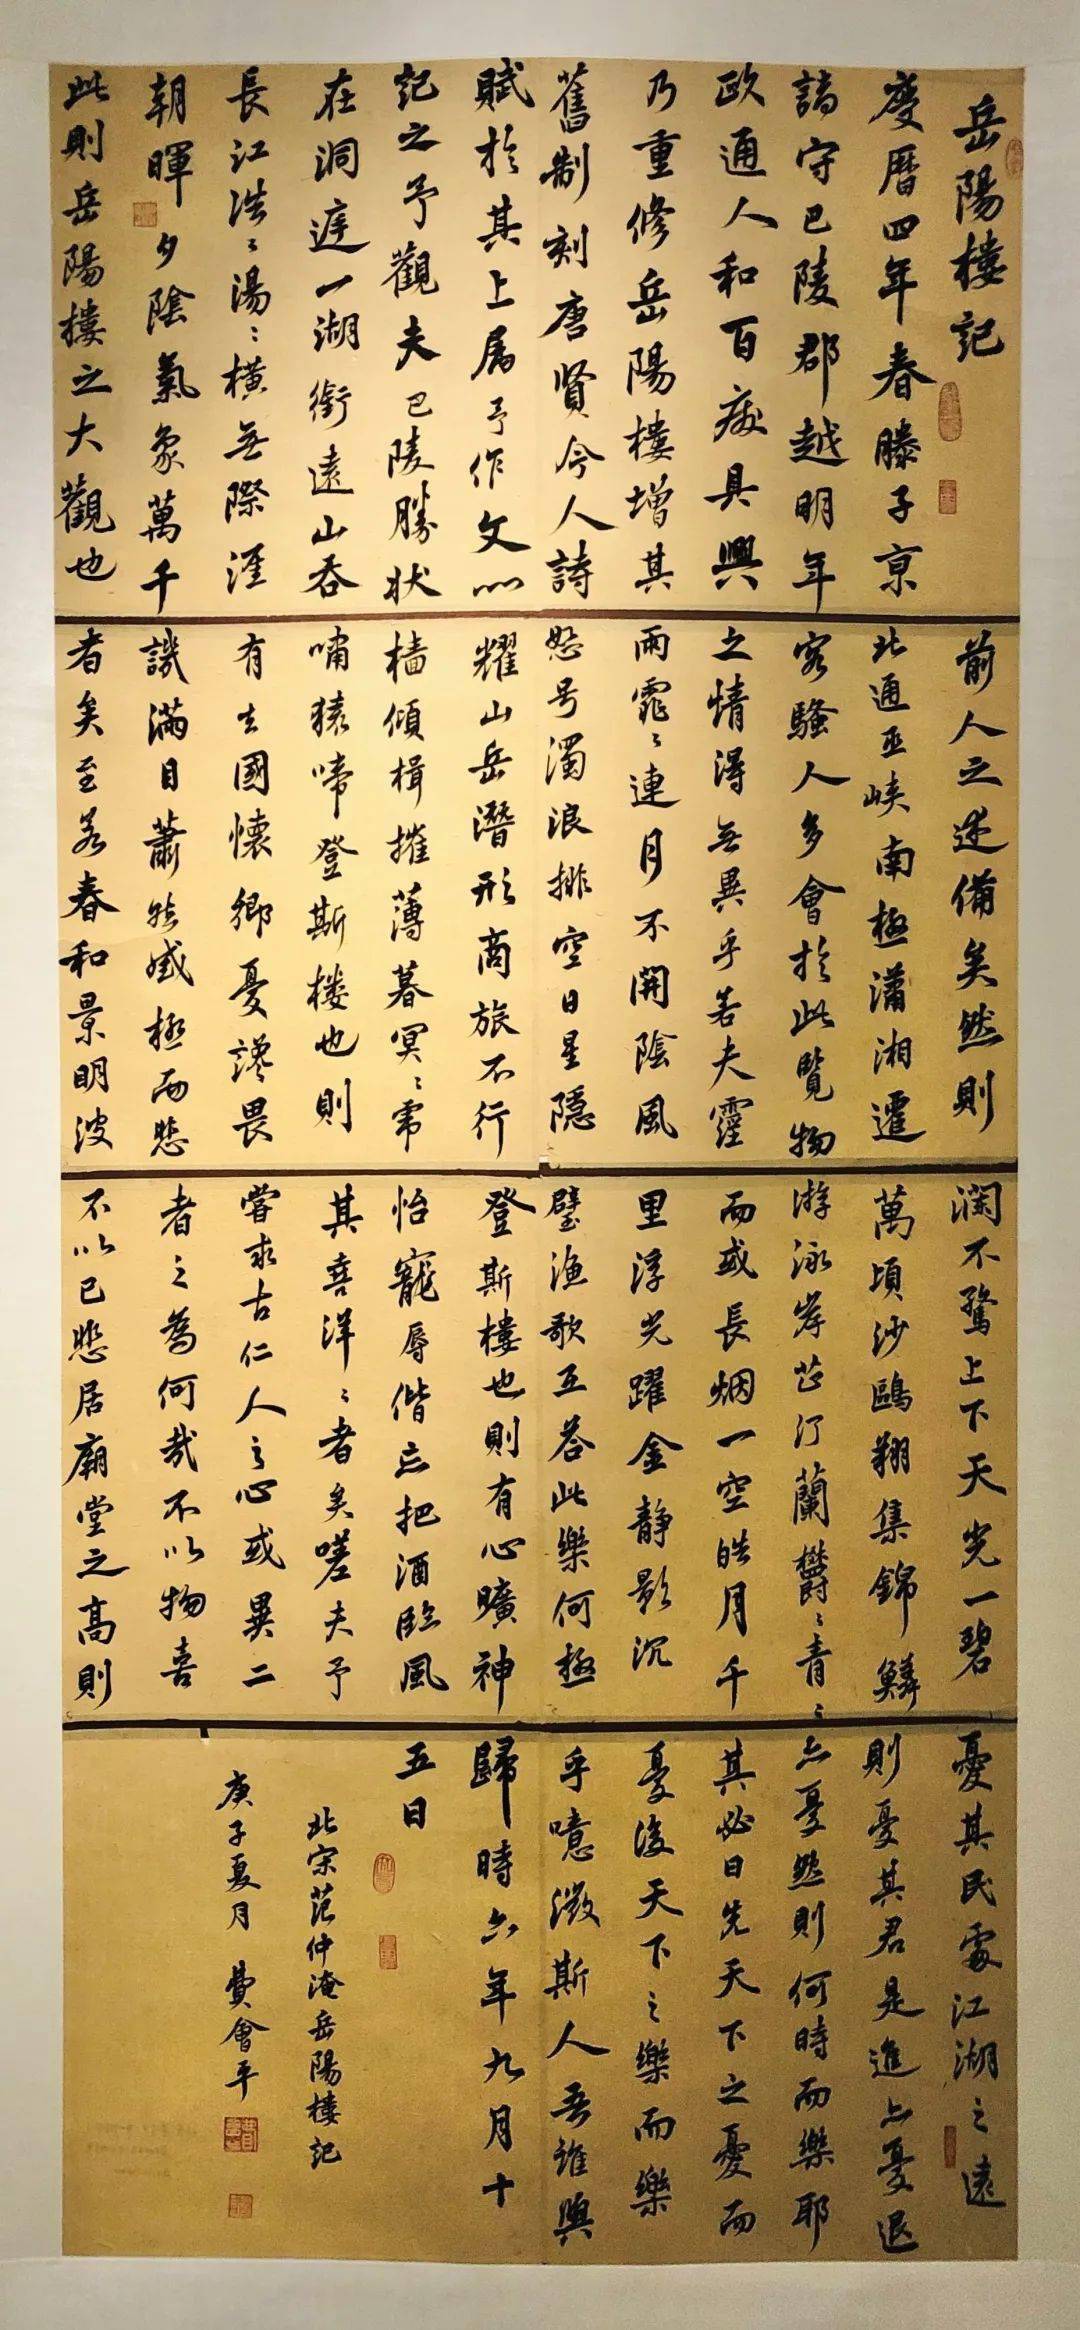 岳陽樓記
慶曆四年春滕子京
謫守巴陵郡越明年
政通人和百廢具興
乃重修岳陽樓增其
舊制刻唐賢今人詩
賦於其上屬予作文以
記之予觀夫巴陵勝狀
在洞庭一湖銜遠山吞
長江浩〻湯〻橫無際涯
朝暉夕陰氣象萬千
此則岳陽樓之大觀也
前人之述備矣然則
北通巫峽南極瀟湘遷
客騷人多會於此覽物
之情得無異乎若夫霪
雨霏〻連月不開陰風
怒号濁浪排空日星隱
耀山岳潛形商旅不行
檣傾楫摧薄暮冥〻虎
嘯猿啼登斯樓也則
有去國懷鄉憂讒畏
譏滿目蕭然感極而悲
者矣至若春和景明波
瀾不驚上下天光一碧
萬頃沙鷗翔集錦鱗
游泳岸芷汀蘭鬱〻青〻
而或長烟一空皓月千
里浮光躍金靜影沉
璧漁歌互答此樂何極
登斯樓也則有心曠神
怡寵辱偕忘把酒臨風
其喜洋〻者矣嗟夫予
嘗求古仁人之心或異二
者之為何哉不以物喜
不以己悲居廟堂之高則
憂其民處江湖之遠
則憂其君是進亦憂退
亦憂然則何時而樂耶
其必曰先天下之憂而
憂後天下之樂而樂
乎噫微斯人吾誰與
歸時六年九月十
五日
北宋范仲淹岳陽樓記
庚子夏月 費會平